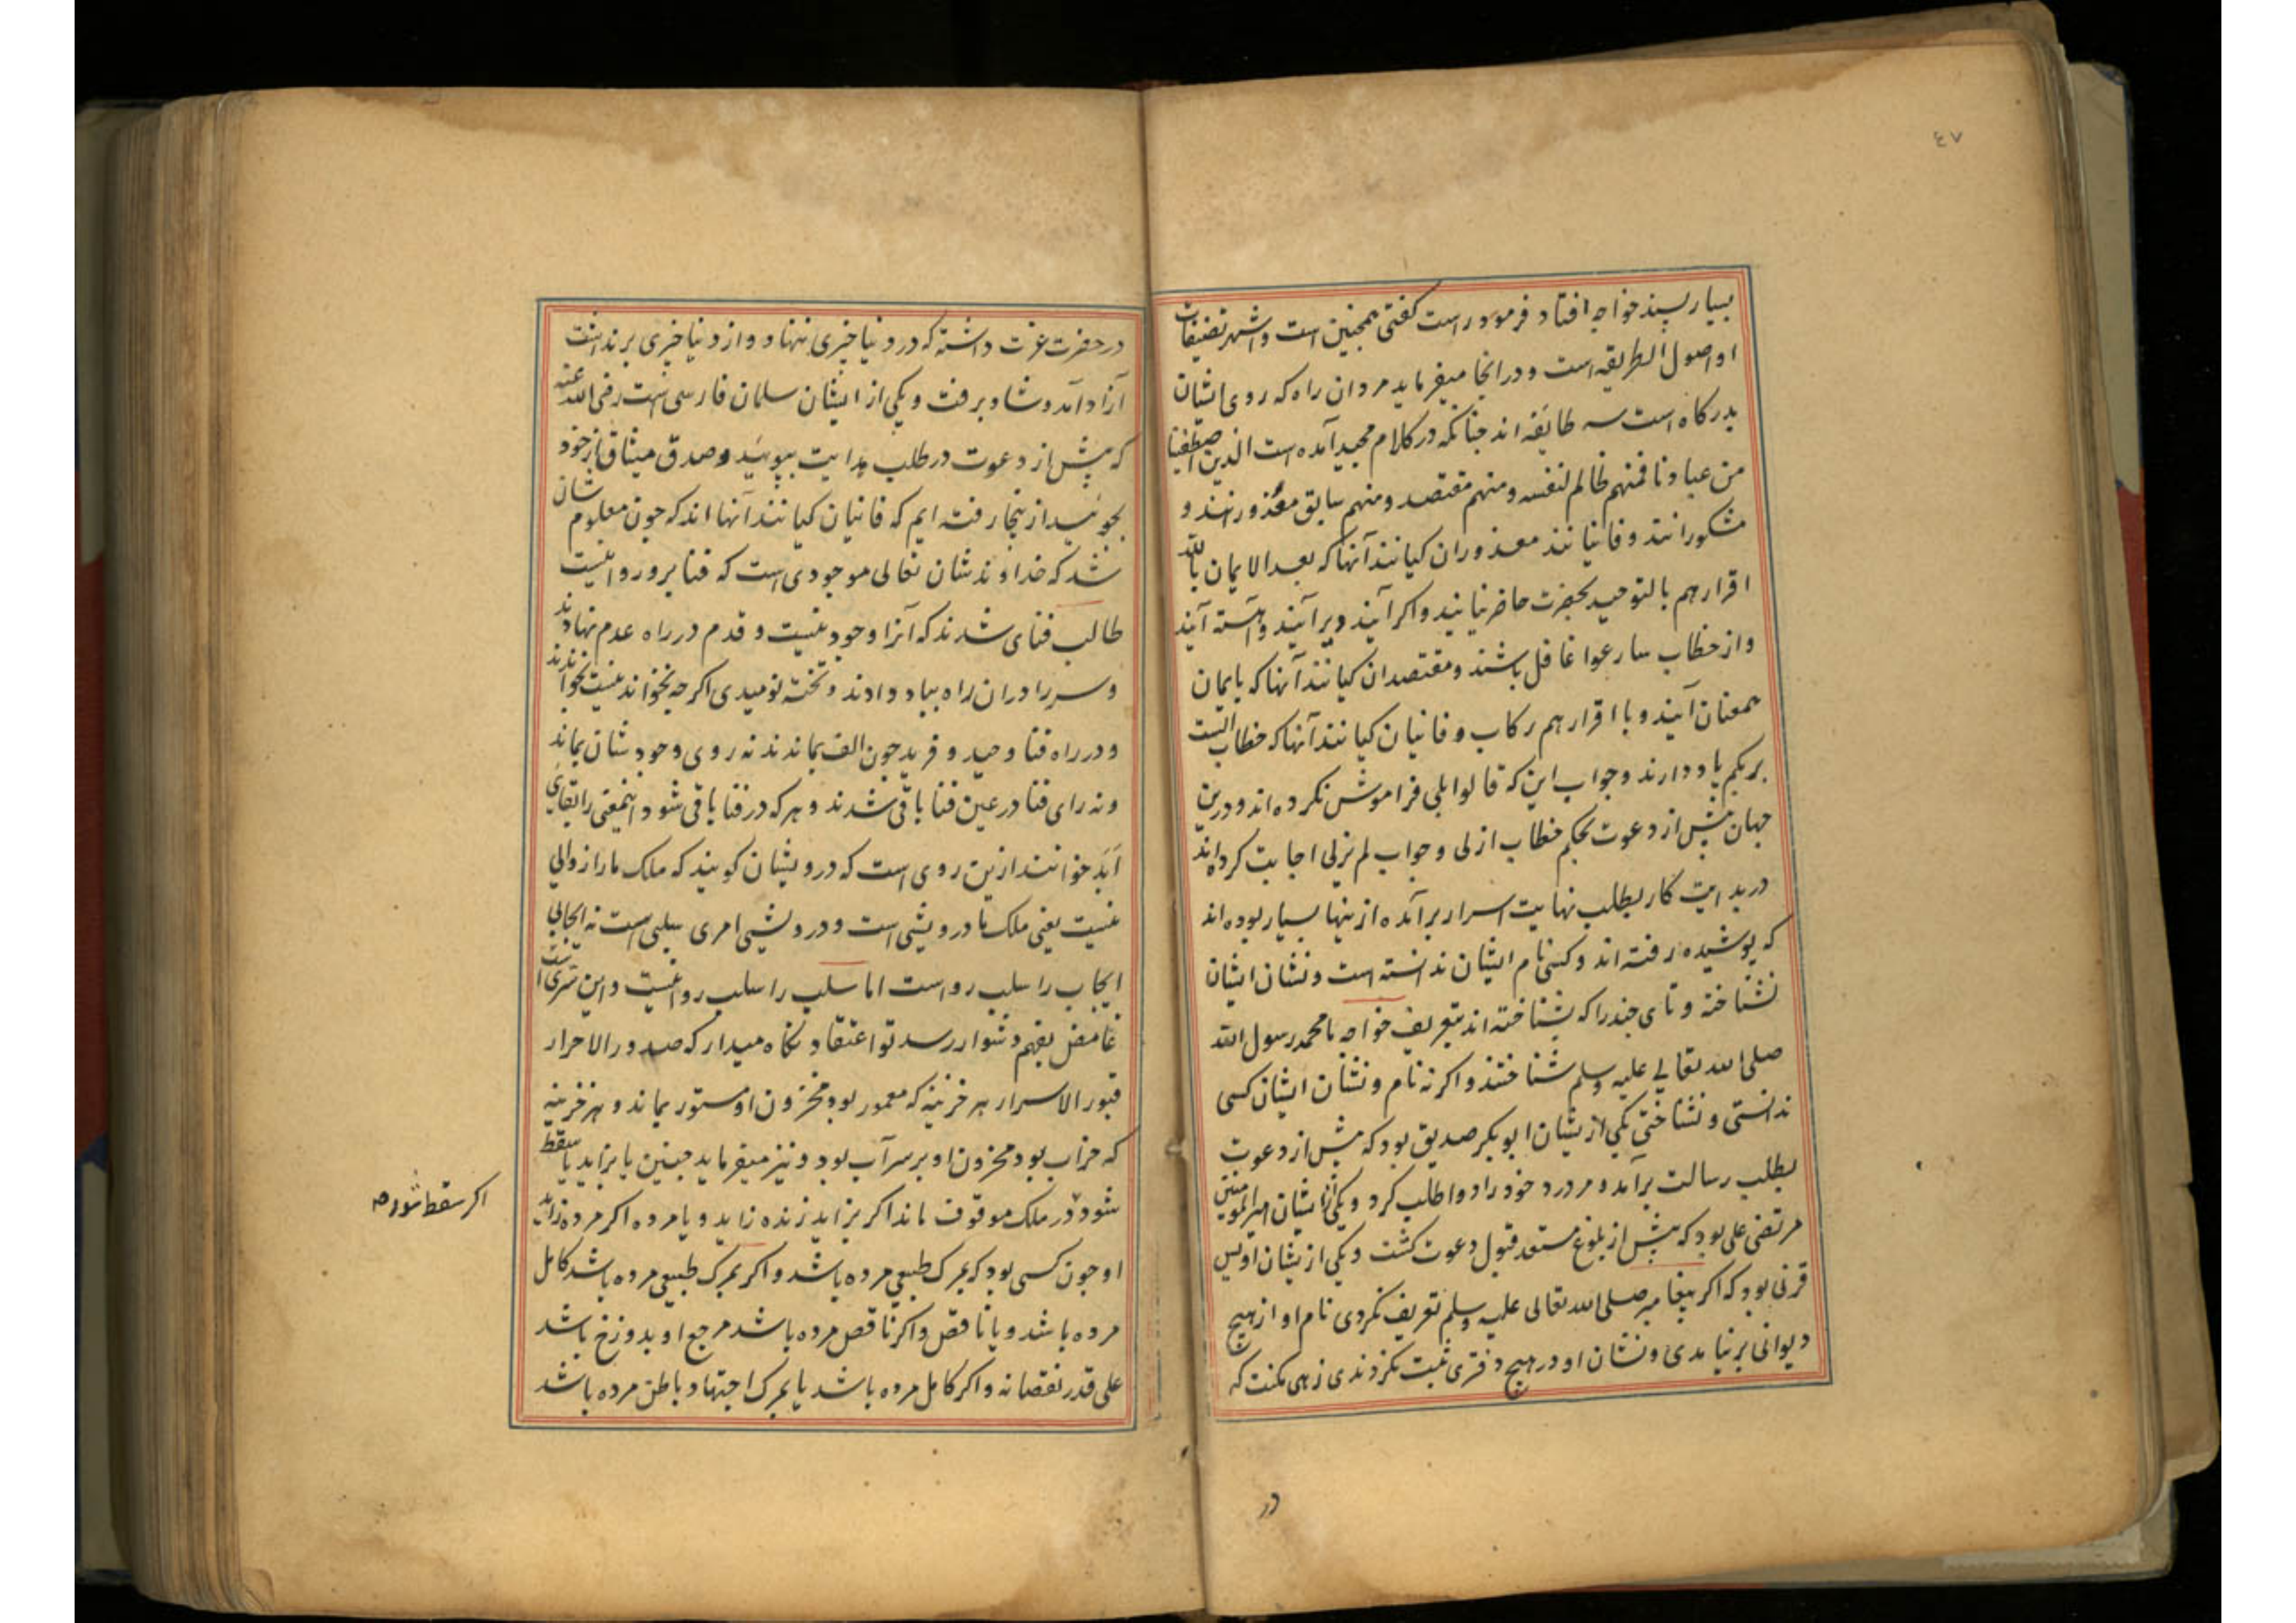 ٤٧
بسیار پسند خواجه افتاد فرمود راست کفتی همچنین است و اشهر تصنیفات
او اصول الطریقه است و در انجا میفرماید مردان راه که روی ایشان
بدرکاه است سه طایفه اند چنانکه در کلام مجید آمده است الذین اصطفینا
من عبادنا فمنهم ظالم لنفسه و منهم مقتصد و منهم سابق معذورانند و
مشکورانند و فانیانند معذوران کیانند آنها که بعد الایمان بالله
اقرار هم بالتوحید بحضرت حاضر نیایند و اکر آیند دیر آیند و آهسته آیند
و از خطاب سارعوا غافل باشند و مقتصدان کیانند آنها که بایمان
همعنان آیند و با اقرار هم رکاب و فانیان کیانند آنها که خطاب الست
بربکم یاد دارند و جواب این که قالوا بلی فراموش نکرده اند و درین
جهان پیش از دعوت بحکم خطاب ازلی و جواب لم یزلی اجابت کرده اند
در بدایت کار بطلب نهایت اسرار برآمده از ینها بسیار بوده اند
که پوشیده رفته اند و کسی نام ایشان ندانسته است و نشان ایشان
نشناخته و تای چند را که شناخته اند بتعریف خواجه ما محمد رسول الله
صلی الله تعالی علیه وسلم شناختند و اکر نه نام و نشان ایشان کسی
ندانستی و نشناختی یکی از یشان ابو بکر صدیق بود که پیش از دعوت
بطلب رسالت برآمد و مر درد خود را دوا طلب کرد و یکی از ایشان امیر المومنین
مرتضی علی بود که پیش از بلوغ مستعد قبول دعوت کشت و یکی از یشان اویس
قرنی بود که اکر پیغامبر صلی الله تعالی علیه وسلم تعریف نکردی نام او از هیچ
دیوانی بر نیامدی و نشان او در هیچ دفتری ثبت نکردندی زهی مکنت که
در
در حضرت عزت داشته که در دنیا خبری ننهاد و از دنیا خبری بر نداشت
آزاد آمد و شاد برفت و یکی از ایشان سلمان فارسی است رضی الله عنه
که پیش از دعوت در طلب هدایت بپوئید و صدق میثاق باز خود
بجوئید از ینجا رفته ایم که فانیان کیانند آنها اند که چون معلوم شان
شد که خداوند شان تعالی موجودی است که فنا برو روا نیست
طالب فنای شدند که آنرا وجود نیست و قدم در راه عدم نهادند
و سر را در ان راه بباد دادند و تخته نومیدی اکرچه نخواندنیست بخواندند
و در راه فنا وحید و فرید چون الف بماندند نه روی وجود شان بماند
و نه رای فنا در عین فنا باقی شدند و هر که در فنا باقی شود اینمعنی را بقای
ابد خوانند ازین روی است که درویشان کویند که ملک ما را زوالی
نیست یعنی ملک ما درویشی است و درویشی امری سلبی است نه ایجابی
ایجاب را سلب رواست اما سلب را سلب روا نیست و این سریست
غامض بفهم دشوار رسد تو اعتقاد نکاه میدار که صدور الاحرار
قبور الاسرار هر خزینه که معمور بود مخزون او مستور بماند و هر خزینه
که خراب بود مخزون او بر سر آب بود و نیز میفرماید جنین یا بزاید یا سقط
شود در ملک موقوف ماند اکر بزاید زنده زاید و یا مرده اکر مرده زاید
او چون کسی بود که بمرک طبیعی مرده باشد و اکر بمرک طبیعی مرده باشد کامل
مرده باشد و یا ناقص و اکر ناقص مرده باشد مرجع او بدوزخ باشد
علی قدر نقصانه و اکر کامل مرده باشد یا بمرک اجتهاد باطن مرده باشد
اکر سقط شود